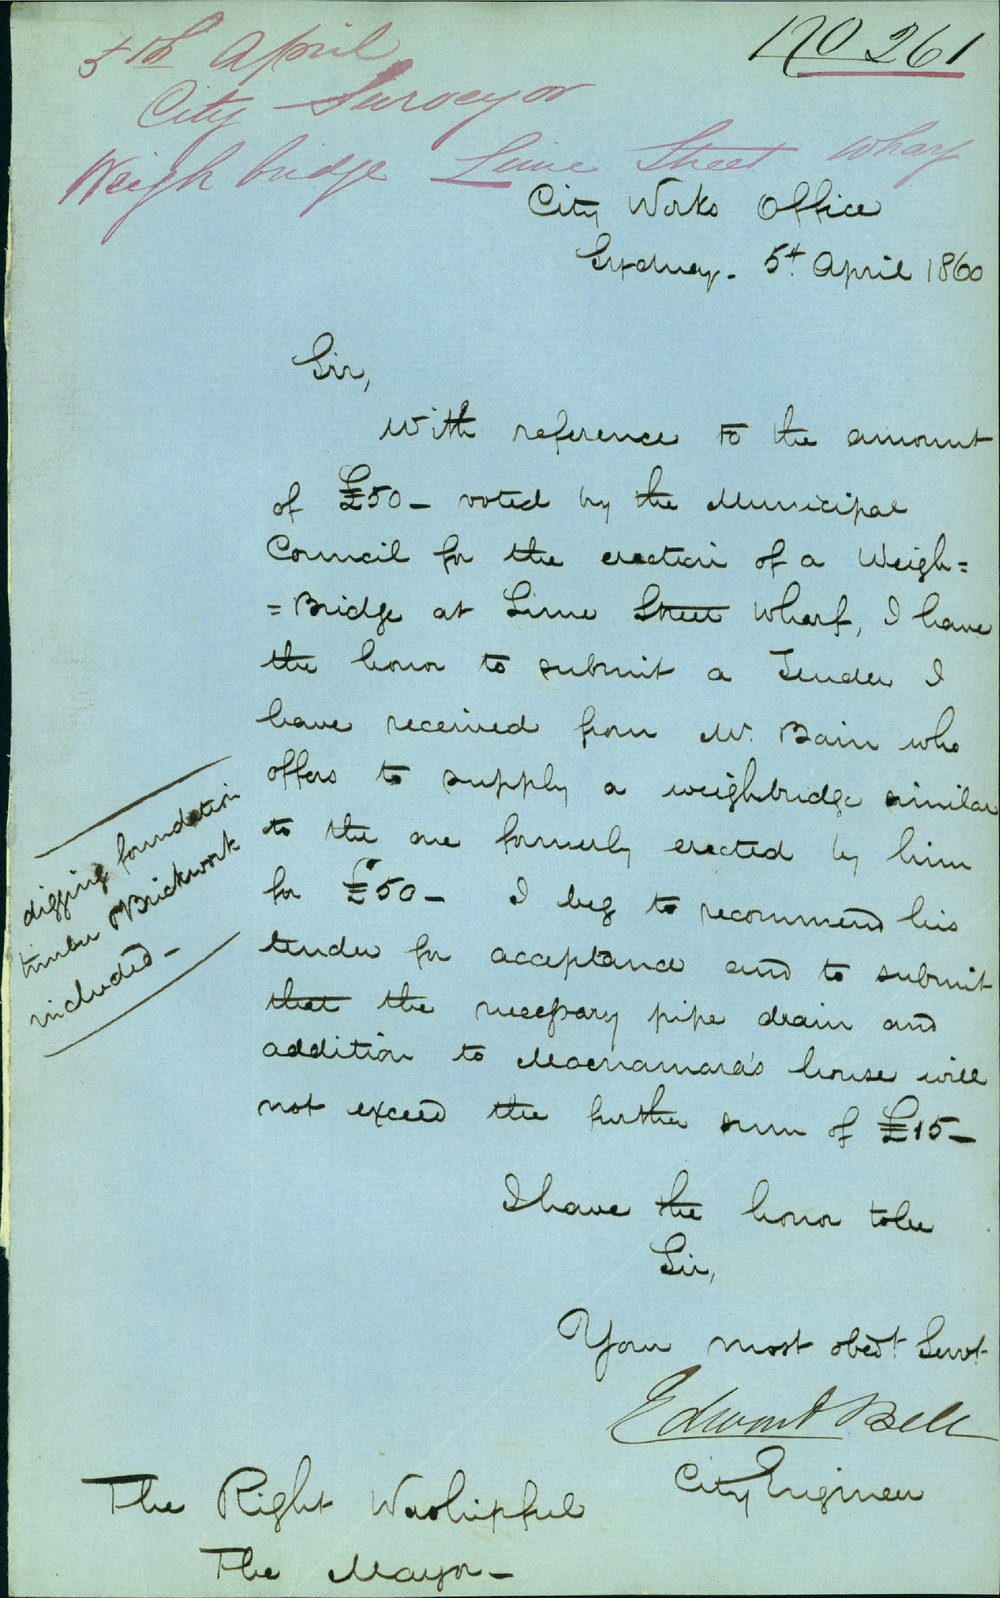 No 261
5th April
City Surveyor
Weigh bridge Lime Street Wharf
City Works Office
Sydney. 5th April 1860
Sir,
With reference to the amount
of £50 - voted by the Municipal
Council for the erection of a Weigh=
=Bridge at Lime Street Wharf, I have
the honor to submit a Tender I
have received from Mr. Bain who
offers to supply a weighbridge similar
to the one formerly erected by him
for £50 - I beg to recommend his
tender for acceptance and to submit
that the necessary pipe drain and
addition to Macnamara's house will
not exceed the further sum of £15 -
digging foundation
timber & Brickwork
included -
I have the honor to be
Sir,
Your most obedt. Servt.
Edward Bell
City Engineer
The Right Worshipful
The Mayor -